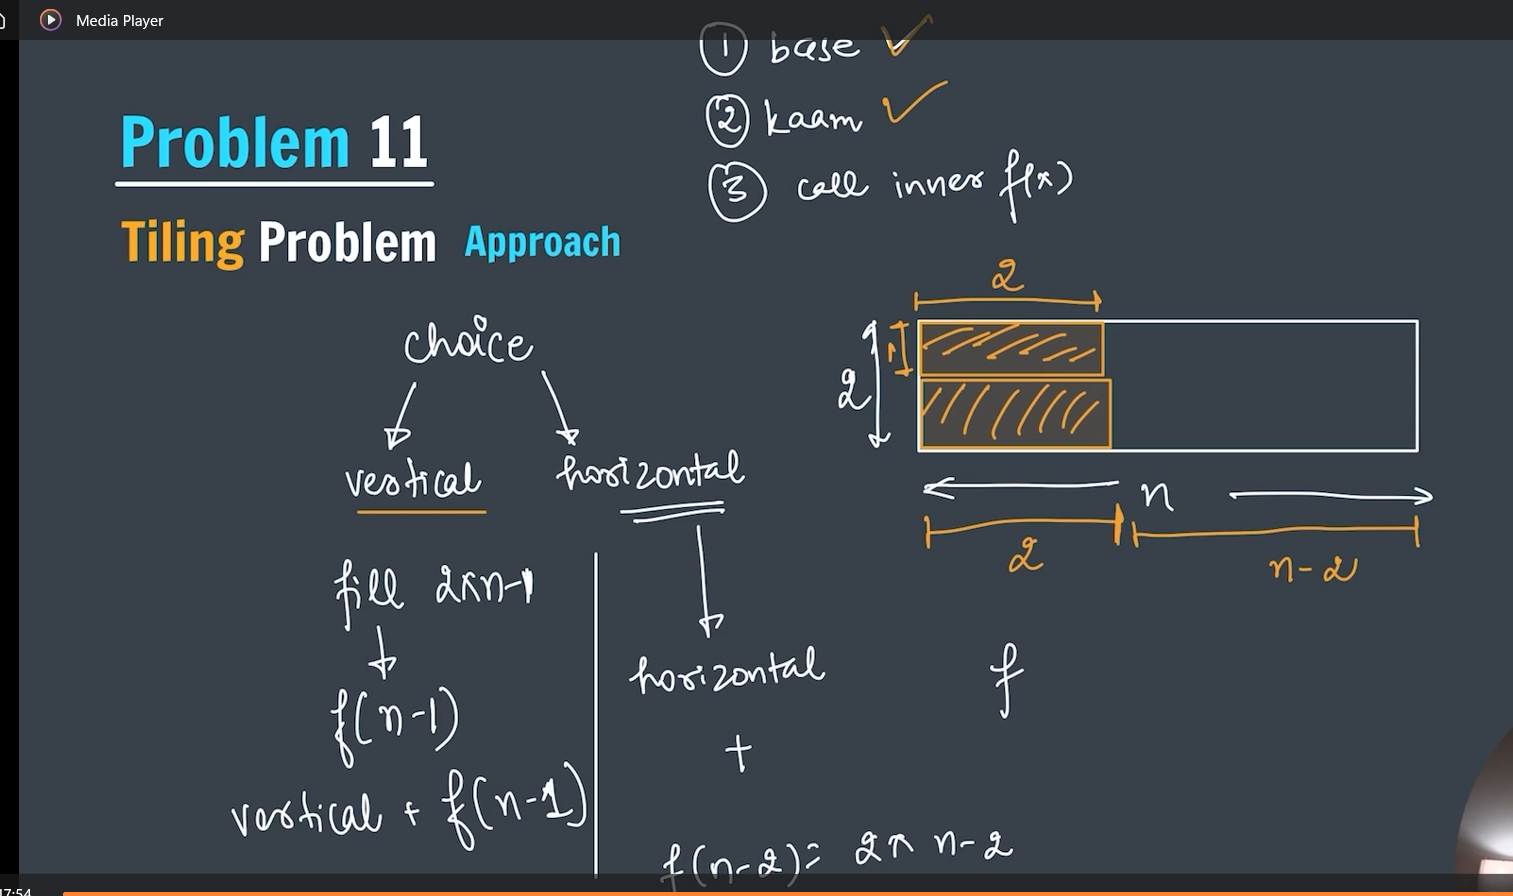 Media Player
① base ✓
② kaam ✓
③ call inner f(x)
Problem 11
Tiling Problem Approach
choice
vertical
horizontal
fill 2xn-1
f(n-1)
vertical + f(n-1)
horizontal
+
f(n-2) = 2x n-2
2
1
2
n
2
n-2
f
17:54